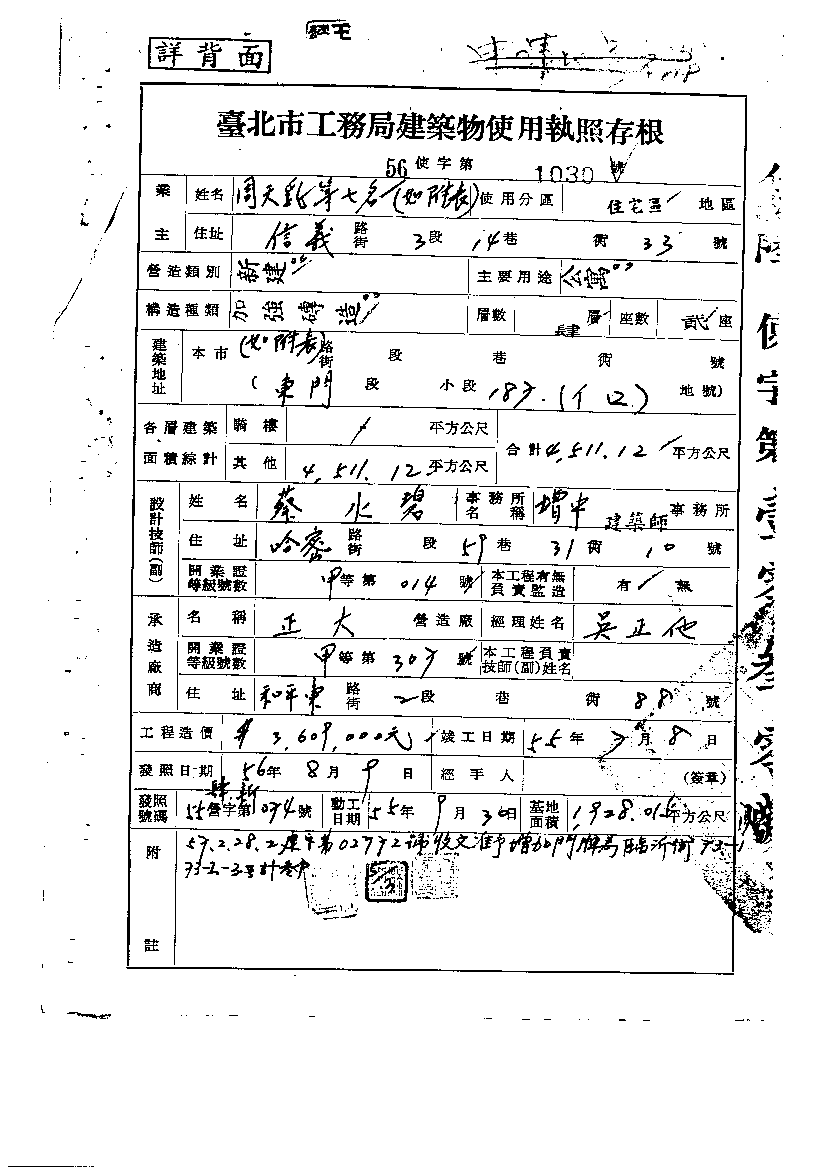 詳背面
臺北市工務局建築物使用執照存根
56 使字第 1030 號
業主 姓名 周天 第七名(如附表) 使用分區 住宅區 地區
住址 信義 路街 3段 14巷 衖 33 號
營造類別 新建 主要用途 公寓
構造種類 加強磚造 層數 肆 層 座數 貳 座
建築地址 本市 (如附表) 路街 段 巷 衖 號
(東門 段 小段 187.( ) 地號)
各層建築面積綜計 騎樓 / 平方公尺 合計 4,511.12 平方公尺
其他 4,511.12 平方公尺
設計技師(副) 姓名 蔡水碧 事務所名稱 增中 建築師 事務所
住址 哈密 路街 段 59 巷 31 衖 10 號
開業證等級號數 甲等第 014 號 本工程有無負責監造 有 / 無
承造廠商 名稱 正大 營造廠 經理姓名 吳正
開業證等級號數 甲等第 307 號 本工程負責技師(副)姓名
住址 和平東 路街 二段 巷 衖 88 號
工程造價 3,609,000元 竣工日期 55年 7月 8日
發照日期 56年 8月 9日 經手人 (簽章)
發照號碼 55營字第 074 號 動工日期 55年 9月 30日 基地面積 1,928.015 平方公尺
附註 57.2.28. 字第02772號收文准予增加門牌為臨沂街73-1
73-2-3